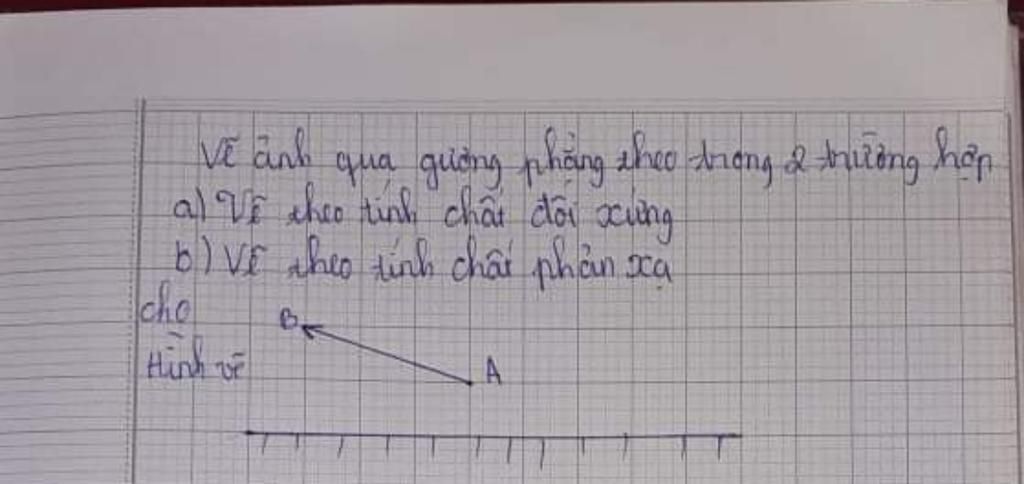 Vẽ ảnh qua gương phẳng theo trong 2 trường hợp
a) Vẽ theo tính chất đối xứng
b) Vẽ theo tính chất phản xạ
cho
Hình vẽ
B
A